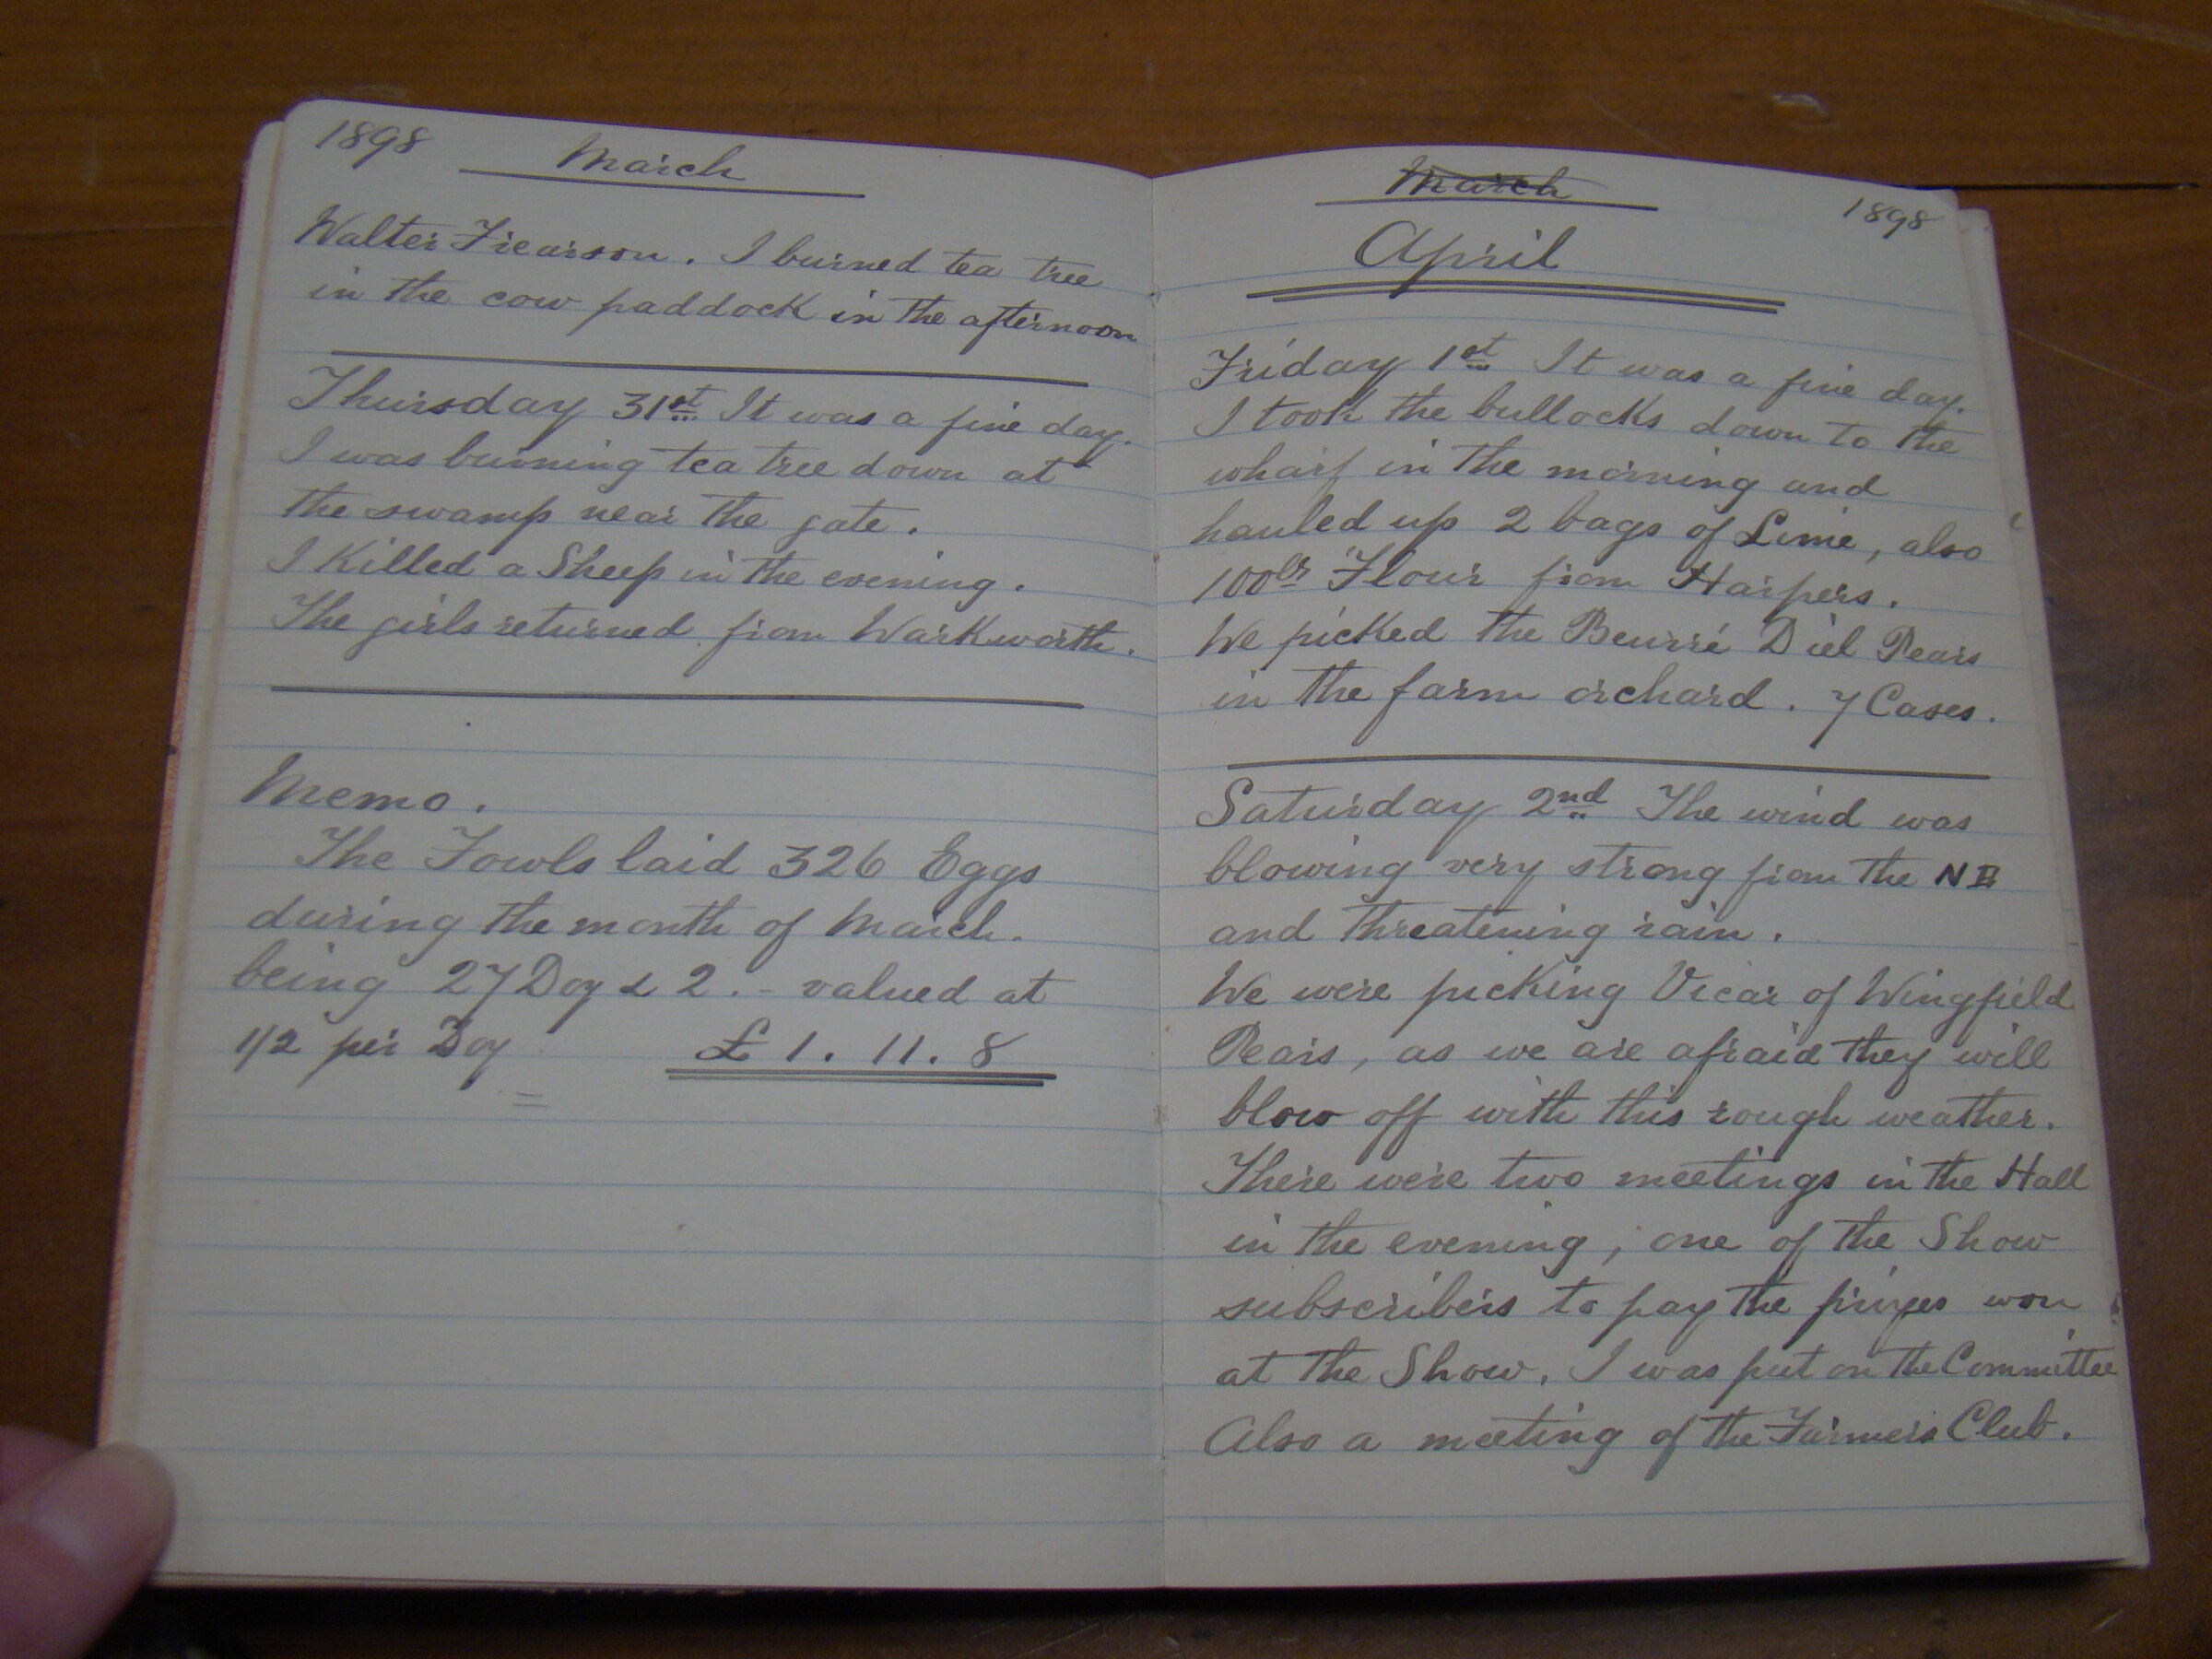 1898 March
Walter Frearson. I burned tea tree
in the cow paddock in the afternoon
Thursday 31st It was a fine day.
I was burning tea tree down at
the swamp near the gate.
I Killed a Sheep in the evening.
The girls returned from Warkworth.
Memo.
The Fowls laid 326 Eggs
during the month of March.
being 27 Doz & 2. - valued at
1/2 per Doz £1. 11. 8
March 1898
April
Friday 1st It was a fine day.
I took the bullocks down to the
wharf in the morning and
hauled up 2 bags of Lime, also
100lbs Flour from Harpers.
We picked the Beurré Diel Pears
in the farm orchard. 7 Cases.
Saturday 2nd The wind was
blowing very strong from the NE
and threatening rain.
We were picking Vicar of Wingfield
Pears, as we are afraid they will
blow off with this rough weather.
There were two meetings in the Hall
in the evening, one of the Show
subscribers to pay the prizes won
at the Show. I was put on the Committee
Also a meeting of the Farmers Club.